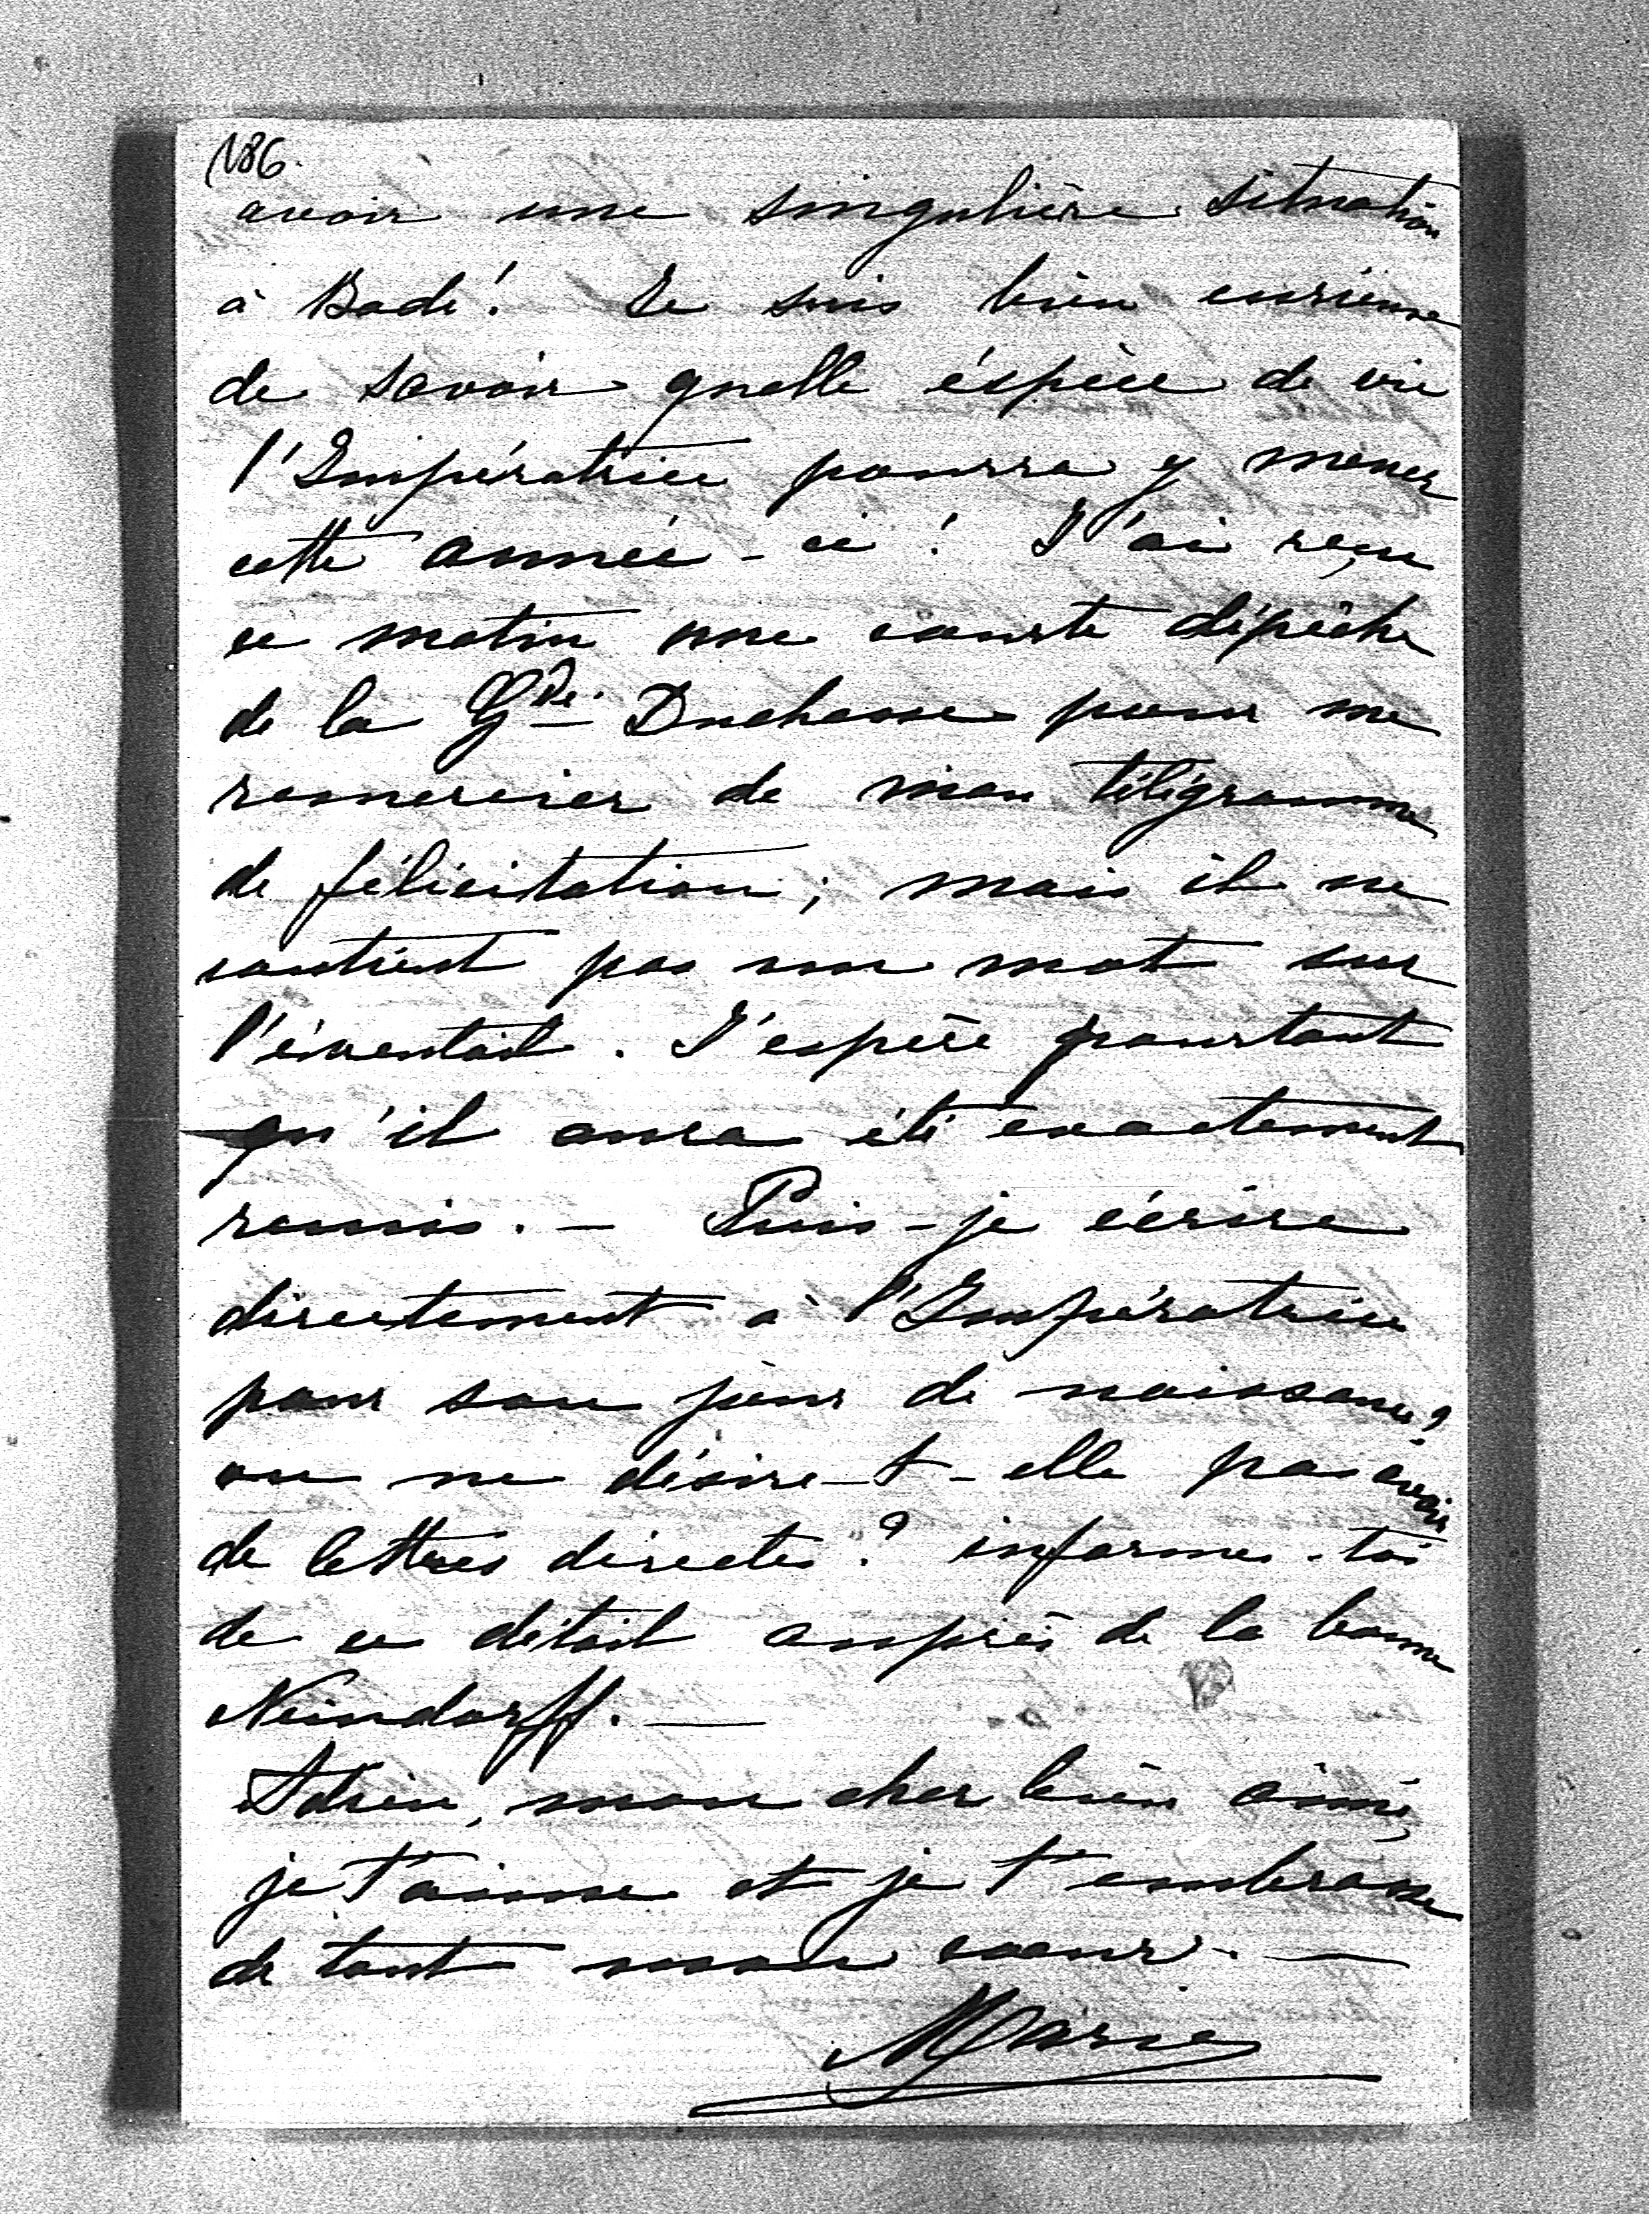 186.
avoir une singulière situation
à Bade! Je suis bien curieuse
de savoir quelle éspèce de vie
l'Impératrice pourra y mener
cette année-ci! J'ai reçu
ce matin une courte dépêche
de la Gde Duchesse pour me
remercier de mon télégramme
de félicitation; mais il ne
contient pas un mot sur
l'éventail. J'espère pourtant
qu'il aura été exactement
remis. — Puis-je écrire
directement à l'Impératrice
pour son jour de naissance?
ou ne désire-t-elle pas avoir
de lettres directes? informes-toi
de ce détail auprès de la bonne
Neindorff. —
Adieu, mon cher bien aimé,
je t'aime et je t'embrasse
de tout mon coeur. —
Marie